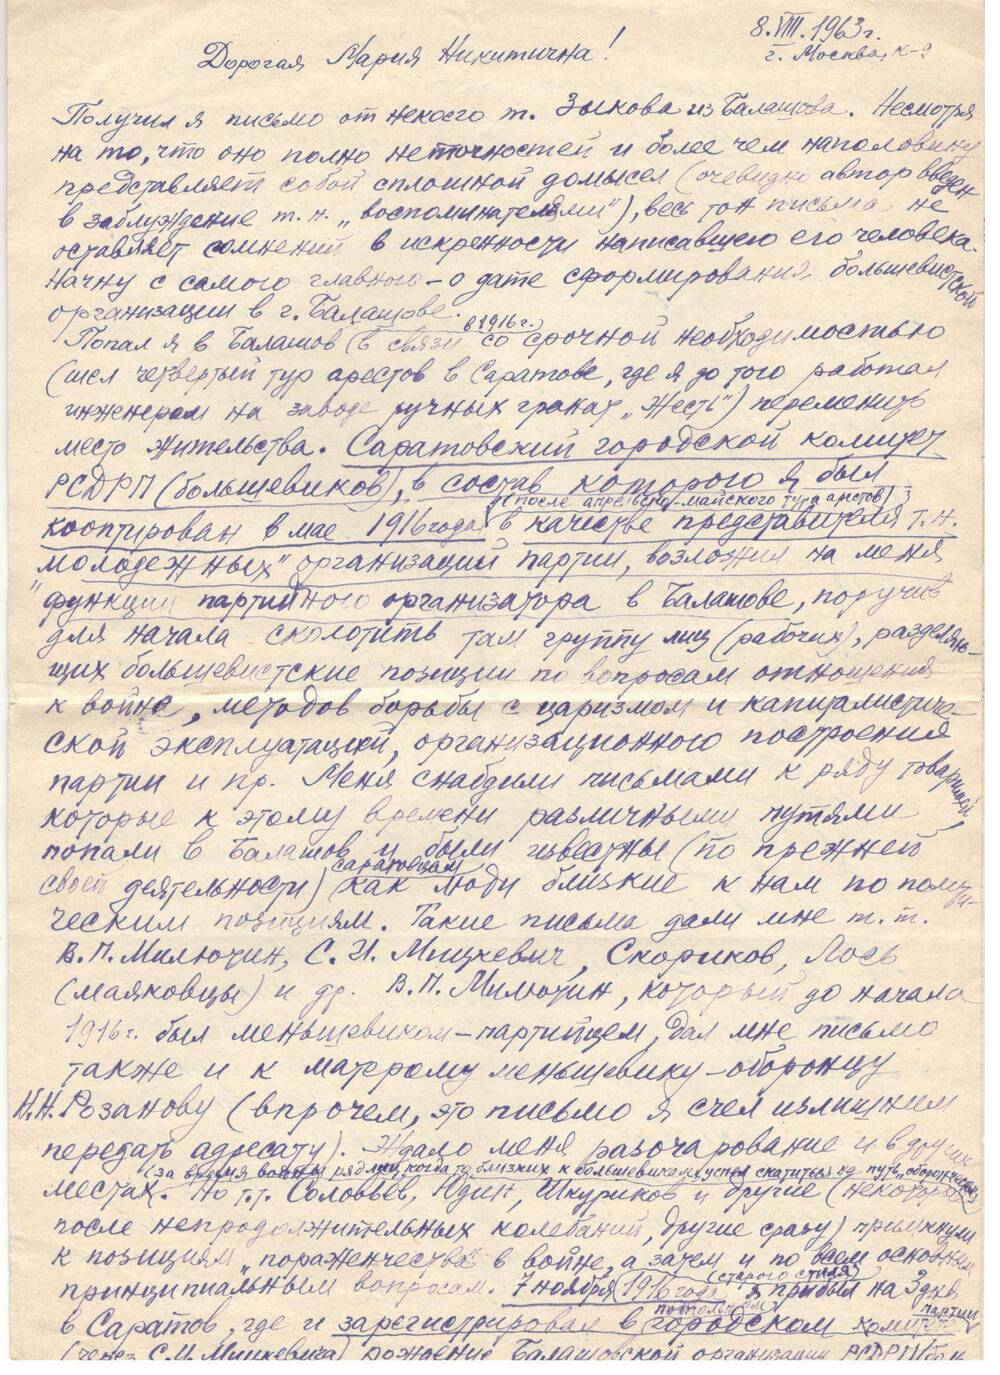 8.VIII.1963г.
г. Москва, К-9
Дорогая Мария Никитична!
Получил я письмо от некоего т. Зыкова из Балашова. Несмотря
на то, что оно полно неточностей и более чем наполовину
представляет собой сплошной домысел (очевидно автор введен
в заблуждение т.н. „воспоминателями"), весь тон письма не
оставляет сомнений в искренности написавшего его человека.
Начну с самого главного – о дате сформирования большевистской
организации в г. Балашове.
в 1916 г.
Попал я в Балашов (в связи со срочной необходимостью
(шел четвертый тур арестов в Саратове, где я до того работал
инженером на заводе ручных гранат „Жесть") переменить
место жительства. Саратовский городской комитет
РСДРП (большевиков), в состав которого я был
(после апрельско-майского тура арестов)
кооптирован в мае 1916 года в качестве представителя т.н.
„молодежных" организаций партии, возложил на меня
функции партийного организатора в Балашове, поручив
для начала сколотить там группу лиц (рабочих), разделяю-
щих большевистские позиции по вопросам отношения
к войне, методов борьбы с царизмом и капиталистиче-
ской эксплуатацией, организационного построения
партии и пр. Меня снабдили письмами к ряду товарищей,
которые к этому времени различными путями
попали в Балашов и были известны (по прежней
саратовцам
своей деятельности) как люди близкие к нам по полити-
ческим позициям. Такие письма дали мне т.т.
В.П. Милютин, С.И. Мицкевич, Скориков, Лось
(маяковцы) и др. В.П. Милютин, который до начала
1916 г. был меньшевиком-партийцем, дал мне письмо
также и к матерому меньшевику-оборонцу
Н.Н. Розанову (впрочем, это письмо я счел излишним
передать адресату). Ждало меня разочарование и в других
(за время войны ряд лиц, когда то близких к большевикам, успел скатиться на путь „оборончества")
местах. Но т.т. Соловьев, Юдин, Шкуриков и другие (некоторые
после непродолжительных колебаний, другие сразу) примкнули
к позициям „пораженчества" в войне, а затем и по всем основным
(старого стиля)
принципиальным вопросам. 7 ноября 1916 года я прибыл на 3 дня
подпольном
партии
в Саратов, где и зарегистрировал в городском комитете
(через С.И. Мицкевича) рождение Балашовской организации РСДРП/боль